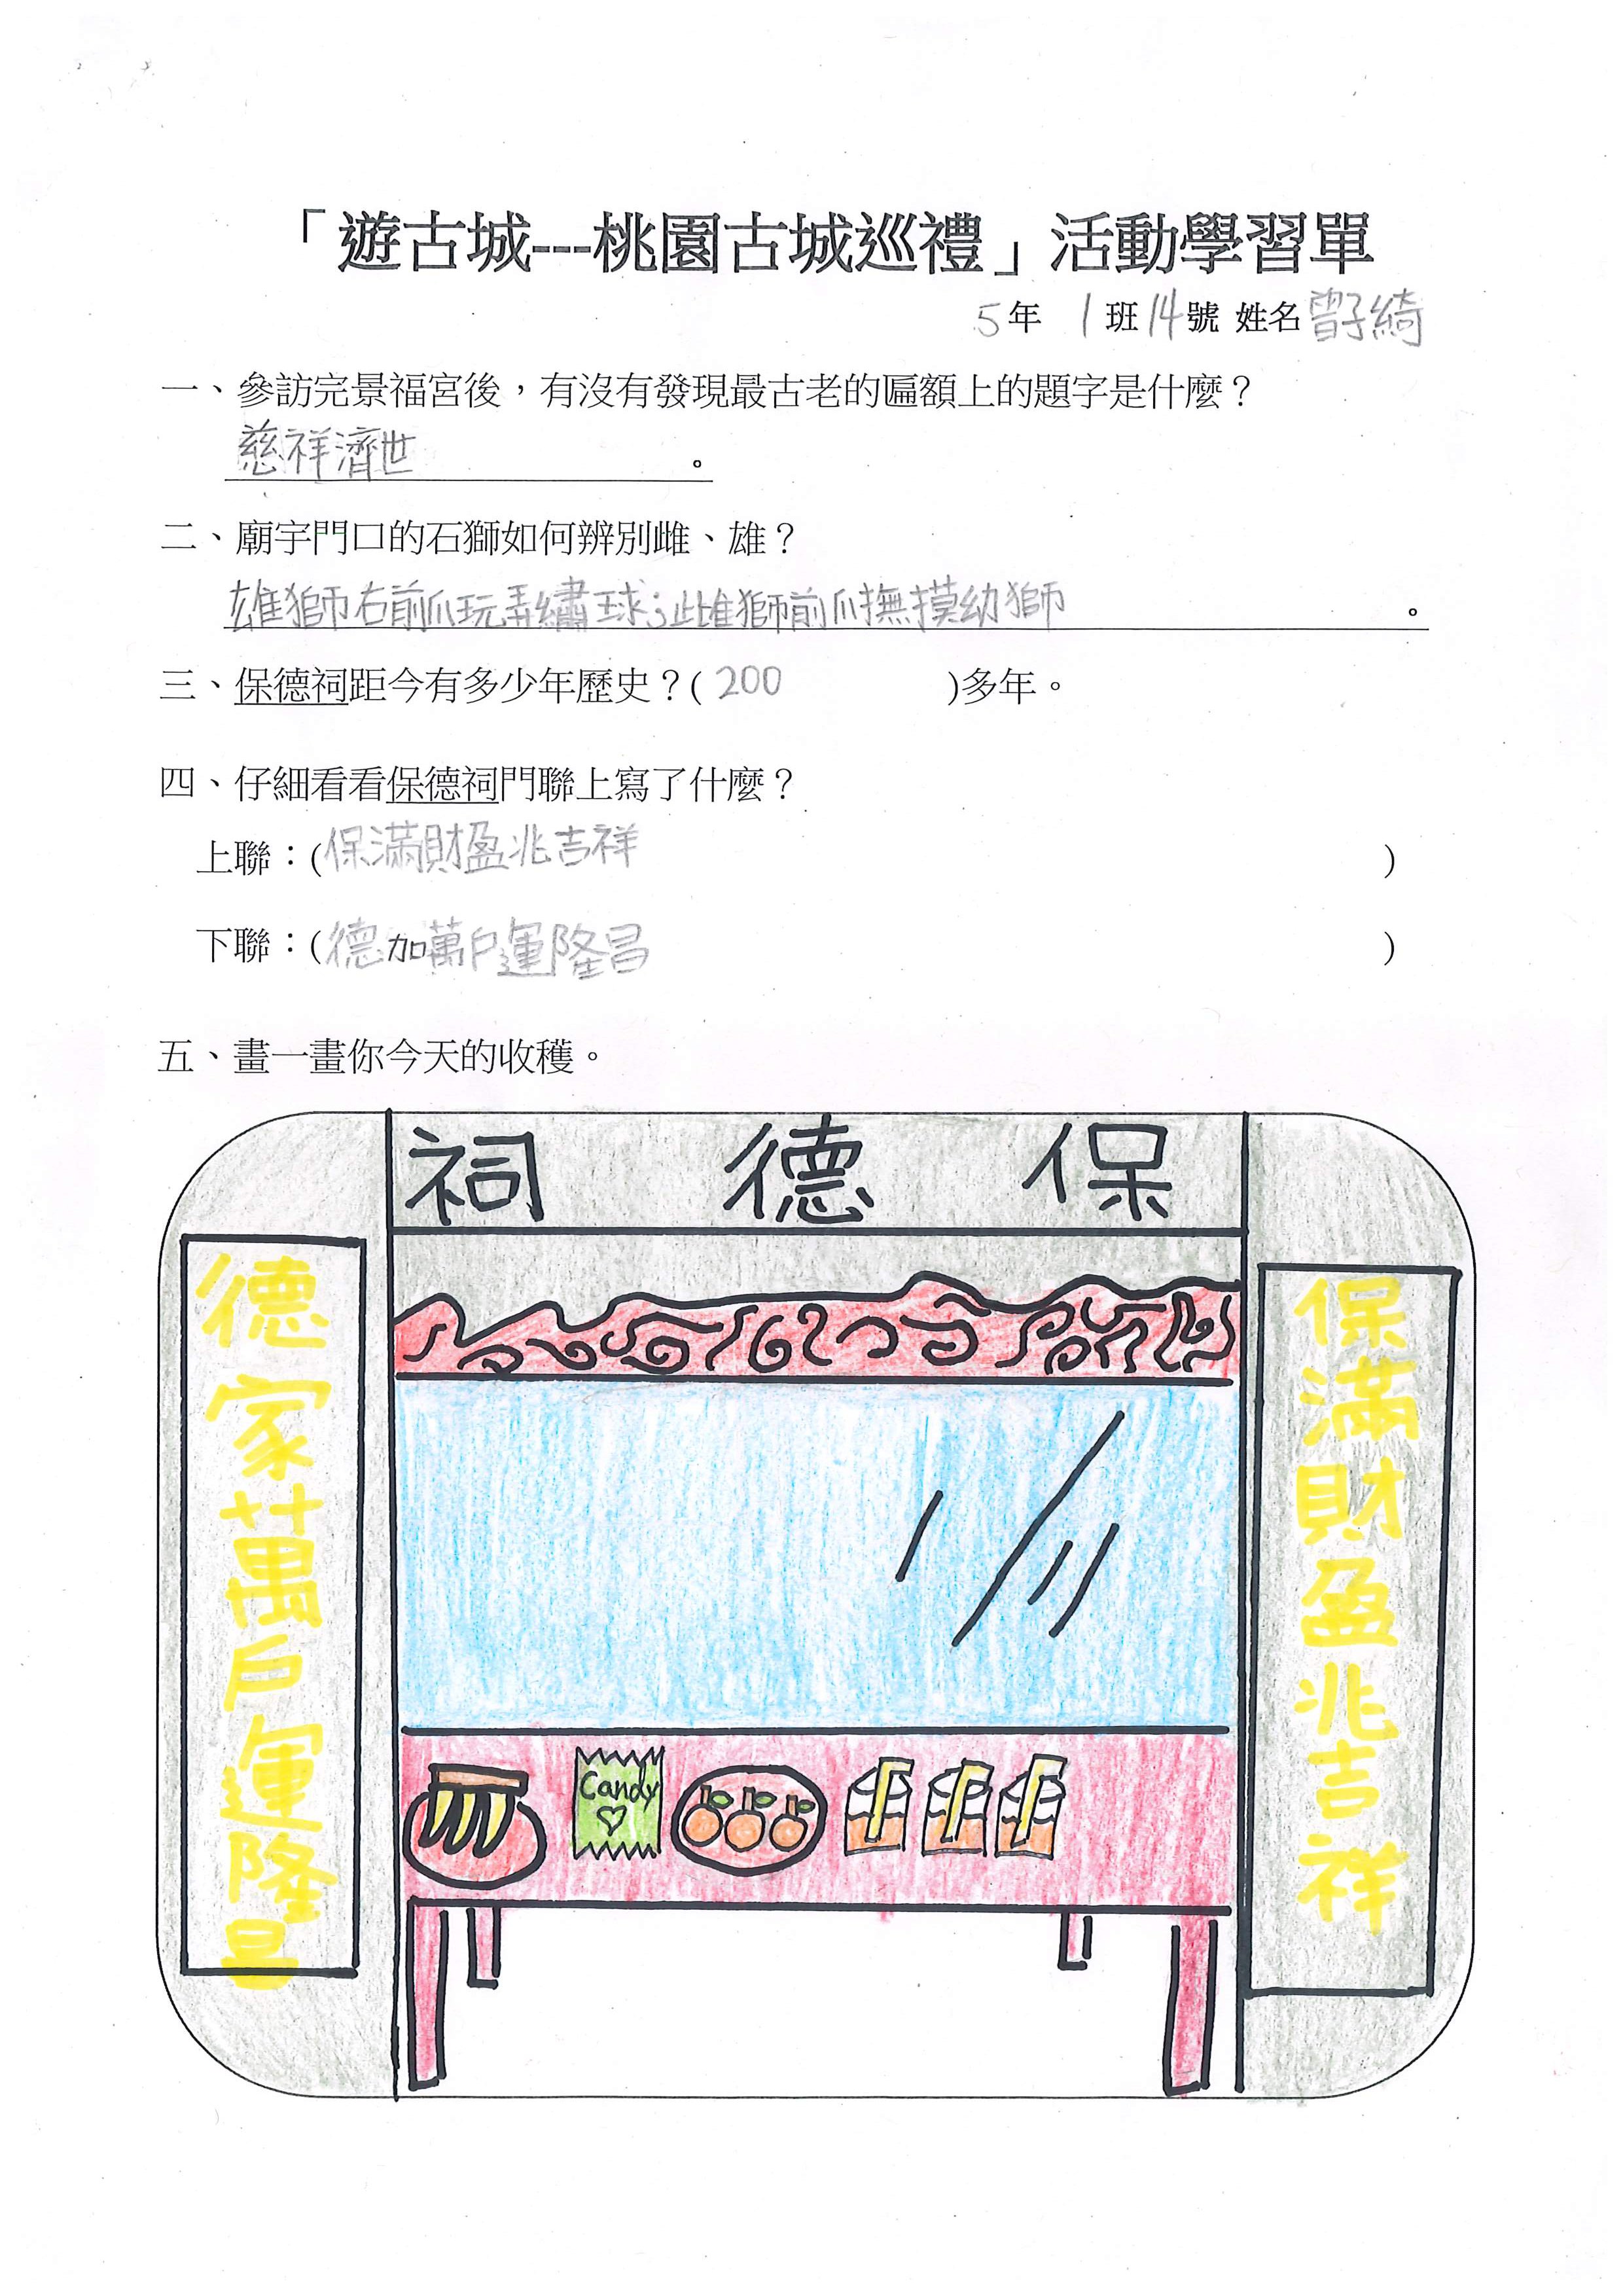 「遊古城---桃園古城巡禮」活動學習單
5年 1班14號 姓名曾子綺
一、參訪完景福宮後，有沒有發現最古老的匾額上的題字是什麼？
慈祥濟世。
二、廟宇門口的石獅如何辨別雌、雄？
雄獅右前爪玩弄繡球；雌獅前爪撫摸幼獅。
三、保德祠距今有多少年歷史？(200)多年。
四、仔細看看保德祠門聯上寫了什麼？
上聯：(保滿財盈兆吉祥)
下聯：(德加萬戶運隆昌)
五、畫一畫你今天的收穫。
祠德保
保滿財盈兆吉祥
德家萬戶運隆昌
Candy